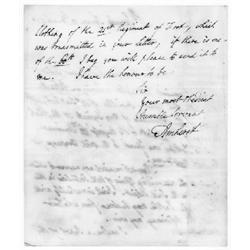 Clothing of the 21st Regiment of Foot, which
was transmitted in your letter, if there is one
of the 60th I beg you will please to send it to
me. I have the honour to be
Sir
Your most Obedient
Humble Servant
Amherst